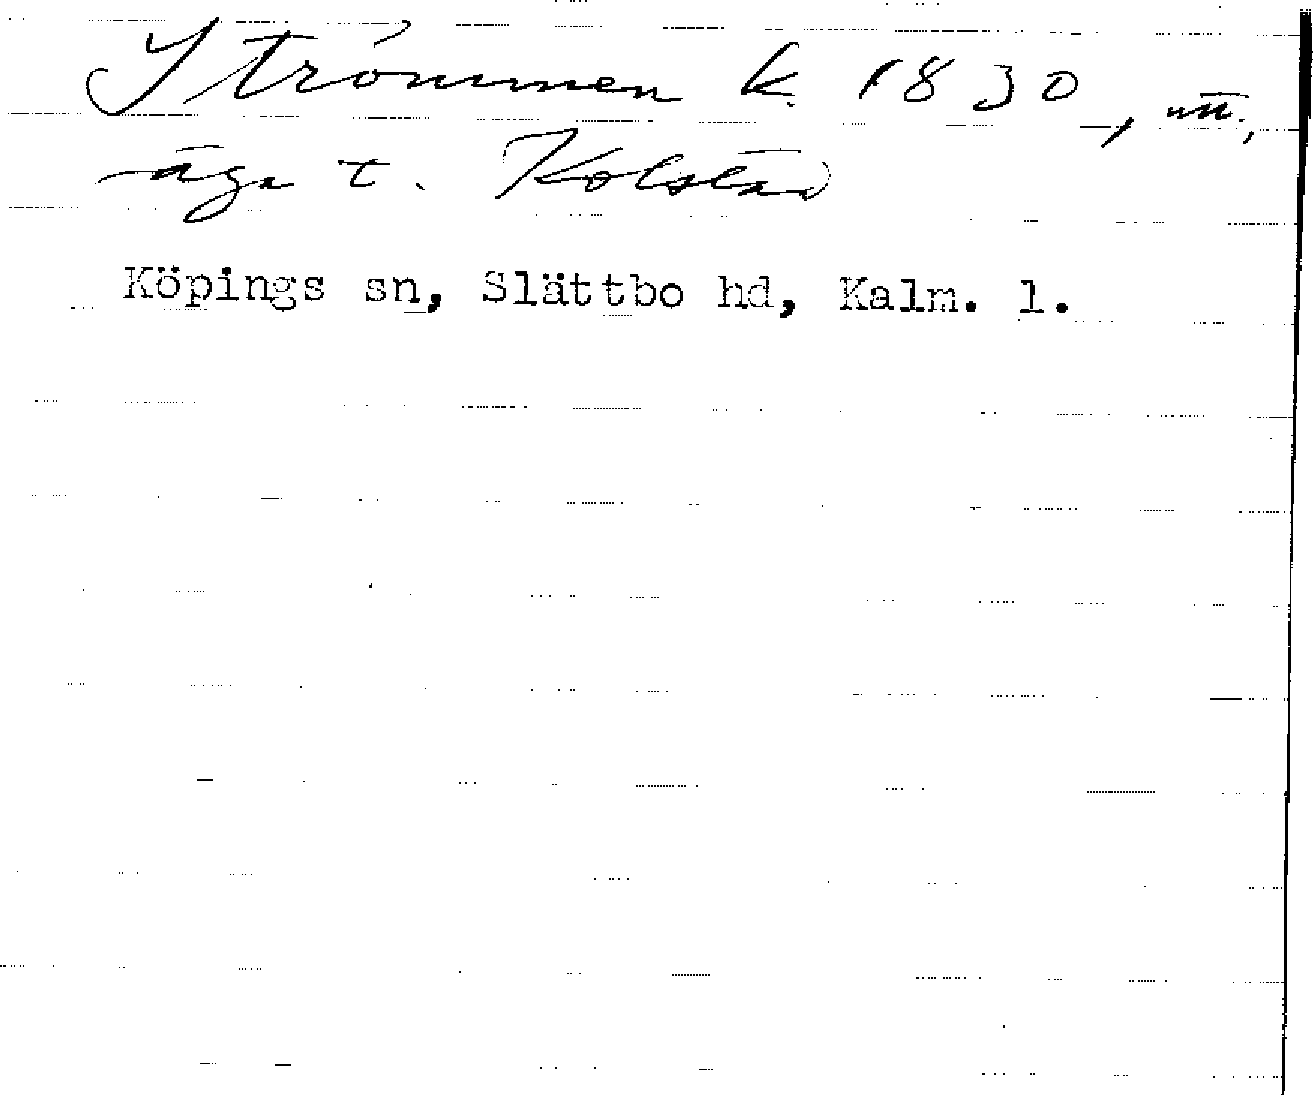 Strömmen k. 1830, utt.,
äga t. Kolstad
Köpings sn, Slättbo hd, Kalm. l.